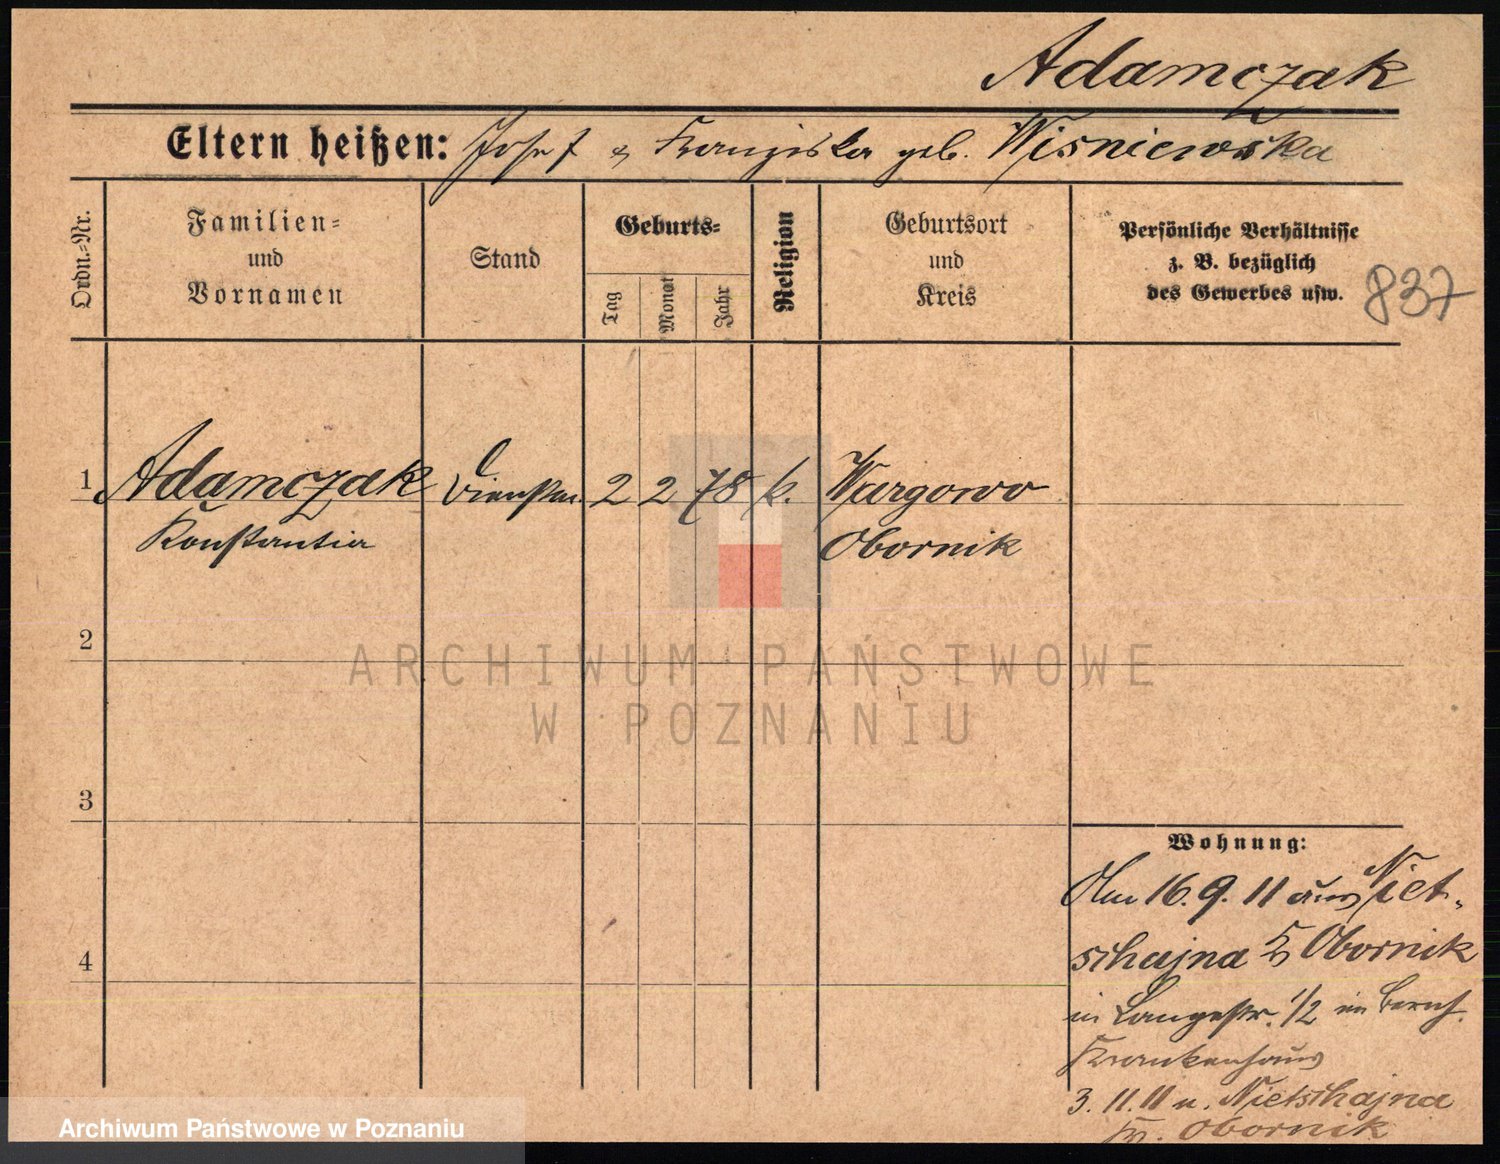 Adamczak
Eltern heißen: Josef & Franziska geb. Wisniewska
Ordn.-Nr.
Familien-
und
Vornamen
Stand
Geburts-
Tag
Monat
Jahr
Religion
Geburtsort
und
Kreis
Persönliche Verhältnisse
z. B. bezüglich
des Gewerbes usw.
837
1 Adamczak 2 2 78 k. Wargowo
Konstantia Obornik
2
ARCHIWUM PAŃSTWOWE
W POZNANIU
3
Wohnung:
Am 16.9.11 aus Niet-
schajna Obornik
4
in Langestr. 1/2 im
Krankenhaus
3.11.11 n. Nietschajna
Kr. Obornik
Archiwum Państwowe w Poznaniu